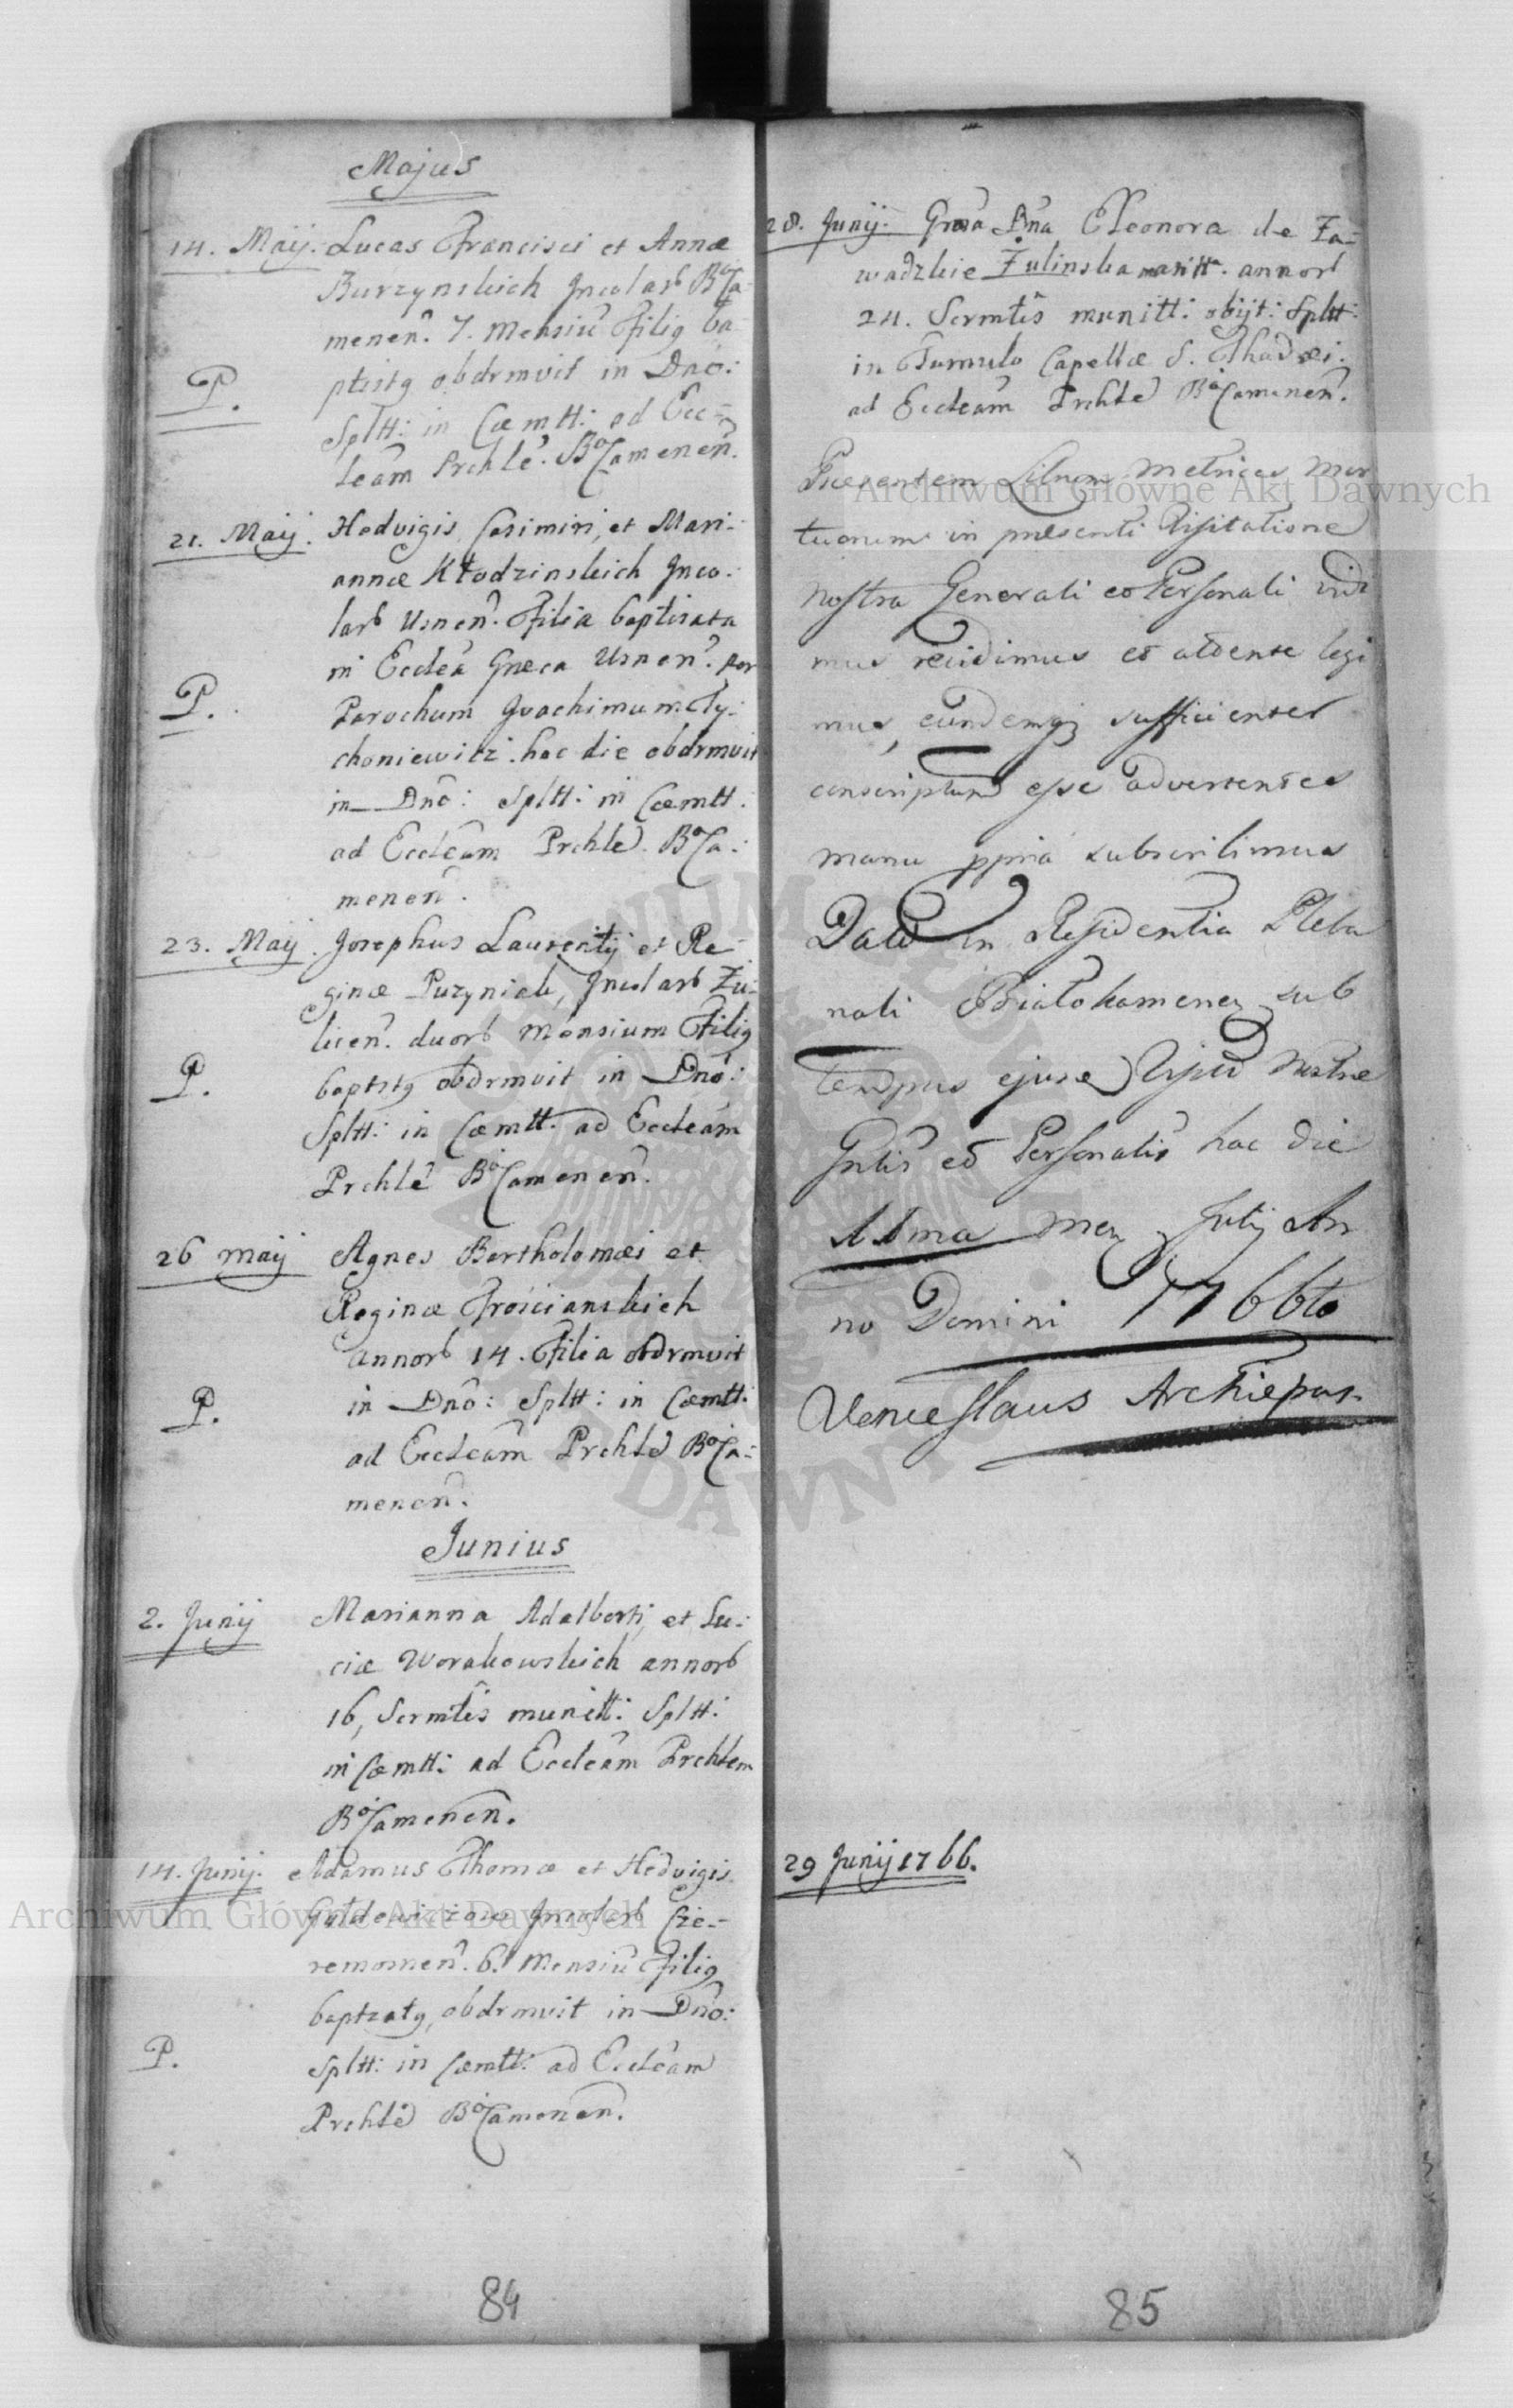 Majus
14. Maij. Lucas Francisci et Annæ
Burzynskich Incolarb BoCa-
menen. 7. Mensiū Filig ba-
P.
ptistg obdrmvit in Dnō:
Spltt: in Cœmtt: ad Ecc-
leām Prchle. BoCamenen.
21. Maij. Hedvigis Casimiri, et Mari-
annæ Kłodzinskich Inco-
larb Usnen. Filia baptisata
in Ecclēa Græca Usnen. per
P.
Parochum Joachimum Ty-
choniewicz. hac die obdrmvit
in Dnō: Spltt: in Cœmtt.
ad Eccleām Prchle. BoCa-
menen.
23. Maij. Josephus Laurentij et Re-
ginæ Puzyniak, Incolarb Zu-
licen. duorb Mensium Filig
P.
baptstg obdrmvit in Dnō:
Spltt: in Cœmtt. ad Eccleām
Prchle BoCamenen.
26 maij Agnes Bartholomæi et
Reginæ Trościanskich
annorb 14. Filia obdrmvit
P.
in Dnō: Spltt: in Cœmtt:
ad Eccleām Prchle BoCa-
menen.
Junius
2. Junij Marianna Adalberti, et Lu-
ciæ Worakowskich annorb
16, Scrmtis munitt: Spltt:
in Cœmtt: ad Eccleām Prchlem
BoCamenen.
14. Junij. Adamus Thomæ et Hedvigis
Incolarb Cze-
remosnen. 6. Mensiū Filig
baptzatg, obdrmvit in Dnō:
P.
Spltt: in Cœmtt: ad Eccleām
Prchle BoCamenen.
84
28. Junij. Dna Eleonora de Za-
wadzkie Żulinska maritt. annorb
24. Scrmtis munitt: obijt: Spltt:
in Tumulo Capellæ S. Thadæi.
ad Eccleām Prchle BoCamenen.
Præsentem Librum Metrices Mor
tuorum in præsenti Visitatione
Nostra Generali et Personali vidi
mus revidimus et attente legi
mus, eundemq sufficienter
conscriptum esse advertentes
manu ppria subscribimus
Datt in Residentia Pleba
nali Białokamenen sub
tempus ejusd Visitt Nostræ
Gnlis et Personalis hac die
Mens Julij An
no Domini 1766to
Venceslaus Archiepus.
29 Junij 1766.
85
Archiwum Główne Akt Dawnych
Archiwum Główne Akt Dawnych